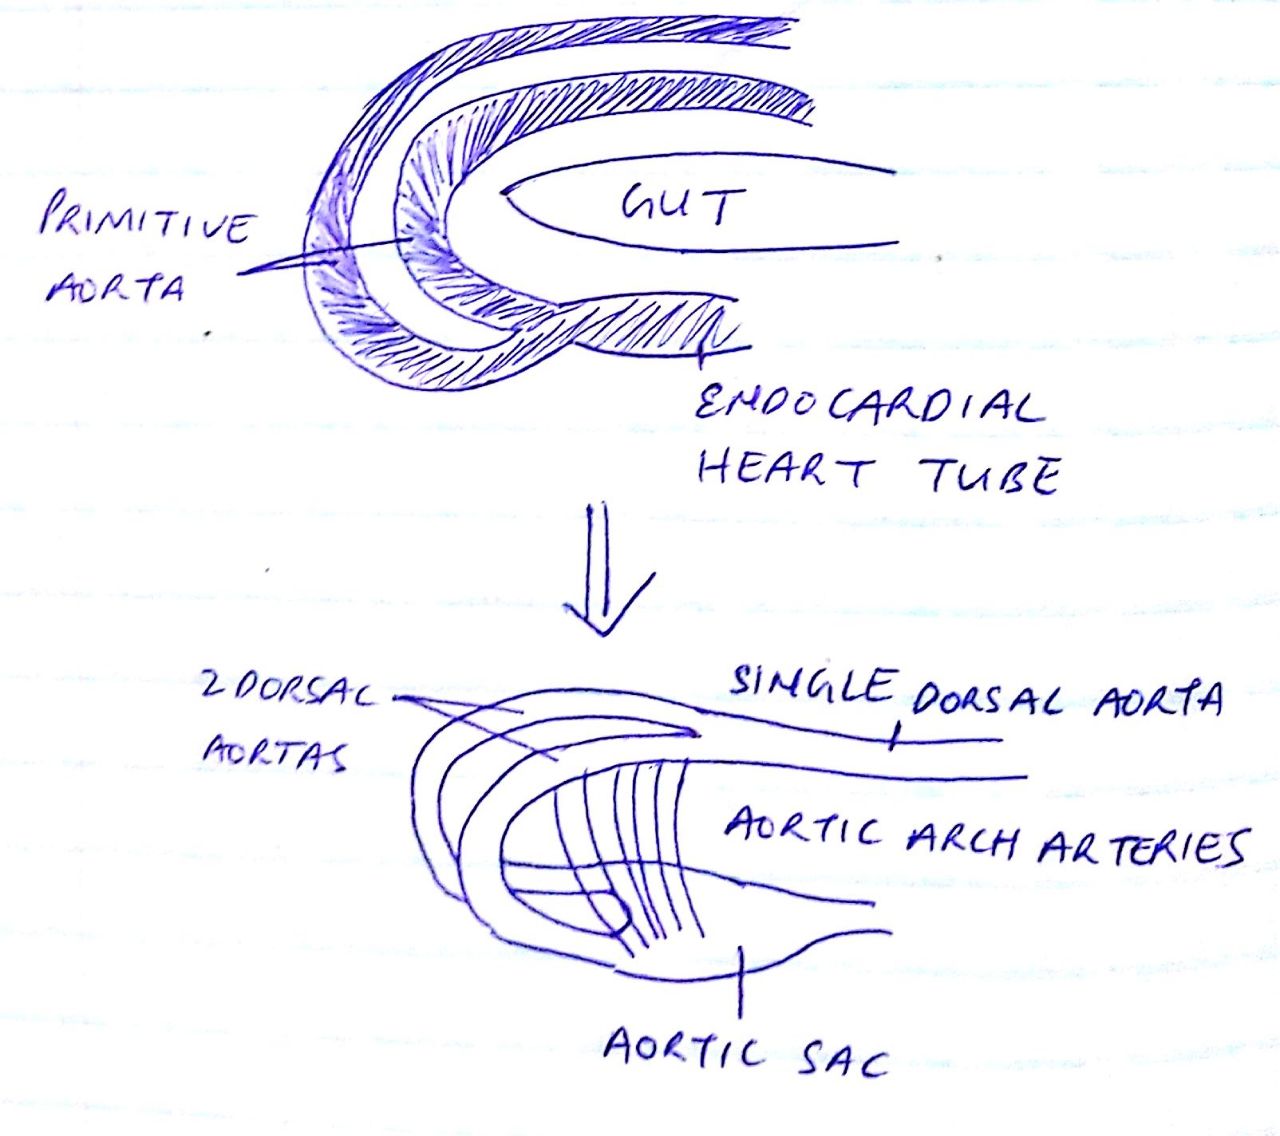 PRIMITIVE
AORTA
GUT
ENDOCARDIAL
HEART TUBE
2 DORSAL
AORTAS
SINGLE DORSAL AORTA
AORTIC ARCH ARTERIES
AORTIC SAC